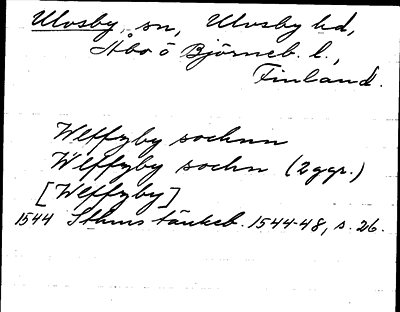 Ulvsby, sn, Ulvsby hd,
Åbo o Björneb. l.,
Finland.
Wlffzby sochnn
Wlffzby sochn (2 ggr.)
[Wlffzby]
1544 Sthms tänkeb. 1544-48, s. 26.